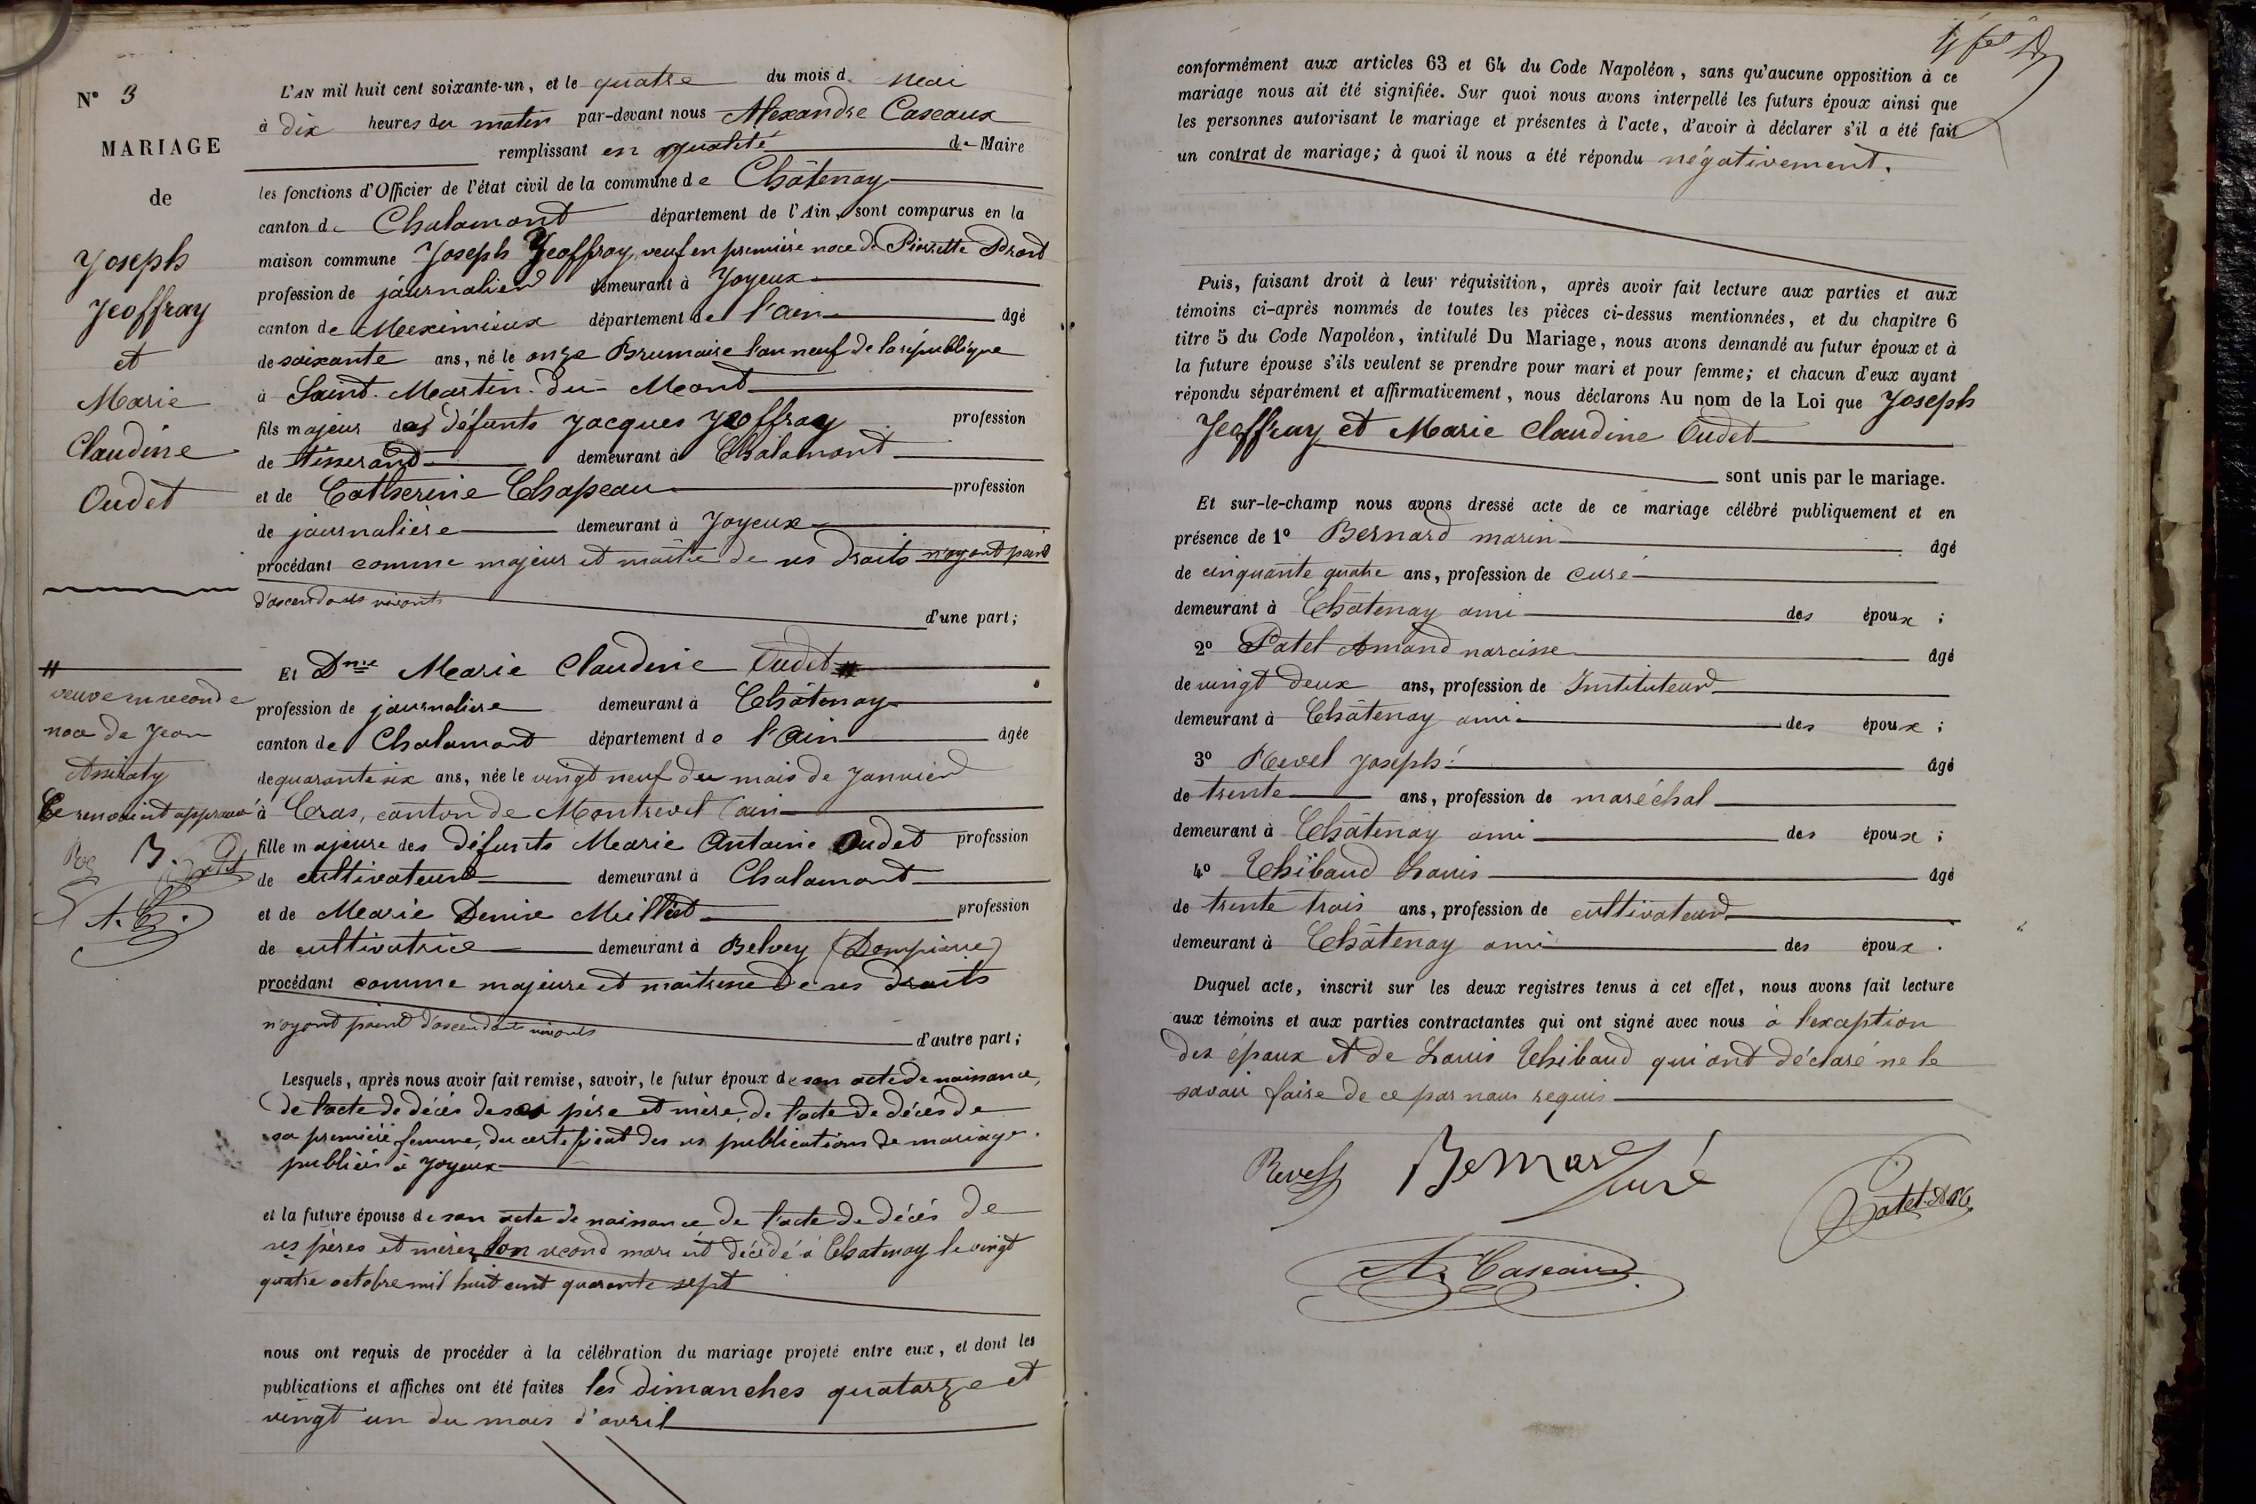 N° 3
MARIAGE
de
Joseph
Jeoffray
et
Marie
Claudine
Oudet
L'AN mil huit cent soixante-un, et le quatre du mois de Mai
à dix heures du matin par-devant nous Alexandre Caseaux
remplissant en qualité de Maire
les fonctions d'Officier de l'état civil de la commune de Châtenay
canton de Chalamont département de l'Ain, sont comparus en la
maison commune Joseph Jeoffray, veuf en première noce de Pierrette
profession de journalier demeurant à Joyeux
canton de Meximieux département de l'ain âgé
de soixante ans, né le onze Brumaire l'an neuf de la république
à Saint-Martin-du-Mont
fils majeur des défunts Jacques Jeoffray profession
de tisserand demeurant à Chalamont
et de Catherine Chapeau profession
de journalière demeurant à Joyeux
procédant comme majeur et maître de ses droits n'ayant point
d'ascendants vivants
d'une part;
Et Dme Marie Claudine Oudet #
profession de journalière demeurant à Châtenay
canton de Chalamont département de l'Ain âgée
de quarante six ans, née le vingt neuf du mois de Janvier
à Cras, canton de Montrevel (ain
fille majeure des défunts Marie Antoine Oudet profession
de cultivateur demeurant à Chalamont
et de Marie Denise Milliet profession
de cultivatrice demeurant à Belvey (Dompierre)
procédant comme majeure et maitresse de ses droits
n'ayant point d'ascendants vivants
d'autre part;
#
veuve en seconde
noce de Jean
Assiraty
Ce renvoi est approuvé
B.
A. C.
Lesquels, après nous avoir fait remise, savoir, le futur époux de son acte de naissance,
de l'acte de décès de ses père et mère, de l'acte de décès de
sa première femme, du certificat des ses publications de mariage
publiées à Joyeux
et la future épouse de son acte de naissance de l'acte de décès de
ses pères et mères son second mari est décédé à Chatenay le vingt
quatre octobre mil huit cent quarante sept
nous ont requis de procéder à la célébration du mariage projeté entre eux, et dont les
publications et affiches ont été faites les dimanches quatorze et
vingt un du mois d'avril
conformément aux articles 63 et 64 du Code Napoléon, sans qu'aucune opposition à ce
mariage nous ait été signifiée. Sur quoi nous avons interpellé les futurs époux ainsi que
les personnes autorisant le mariage et présentes à l'acte, d'avoir à déclarer s'il a été fait
un contrat de mariage; à quoi il nous a été répondu négativement.
Puis, faisant droit à leur réquisition, après avoir fait lecture aux parties et aux
témoins ci-après nommés de toutes les pièces ci-dessus mentionnées, et du chapitre 6
titre 5 du Code Napoléon, intitulé Du Mariage, nous avons demandé au futur époux et à
la future épouse s'ils veulent se prendre pour mari et pour femme; et chacun d'eux ayant
répondu séparément et affirmativement, nous déclarons Au nom de la Loi que Joseph
Jeoffray et Marie Claudine Oudet
sont unis par le mariage.
Et sur-le-champ nous avons dressé acte de ce mariage célébré publiquement et en
présence de 1° Bernard marin âgé
de cinquante quatre ans, profession de curé
demeurant à Châtenay ami des époux;
2° Patel Amand narcisse âgé
de vingt deux ans, profession de Instituteur
demeurant à Châtenay ami des époux;
3° Revel Joseph âgé
de trente ans, profession de maréchal
demeurant à Châtenay ami des époux;
4° Thibaud Louis âgé
de trente trois ans, profession de cultivateur
demeurant à Châtenay ami des époux.
Duquel acte, inscrit sur les deux registres tenus à cet effet, nous avons fait lecture
aux témoins et aux parties contractantes qui ont signé avec nous à l'exception
des époux et de Louis Thibaud qui ont déclaré ne le
savoir faire de ce par nous requis
Revel Bernard curé
A. Caseaux